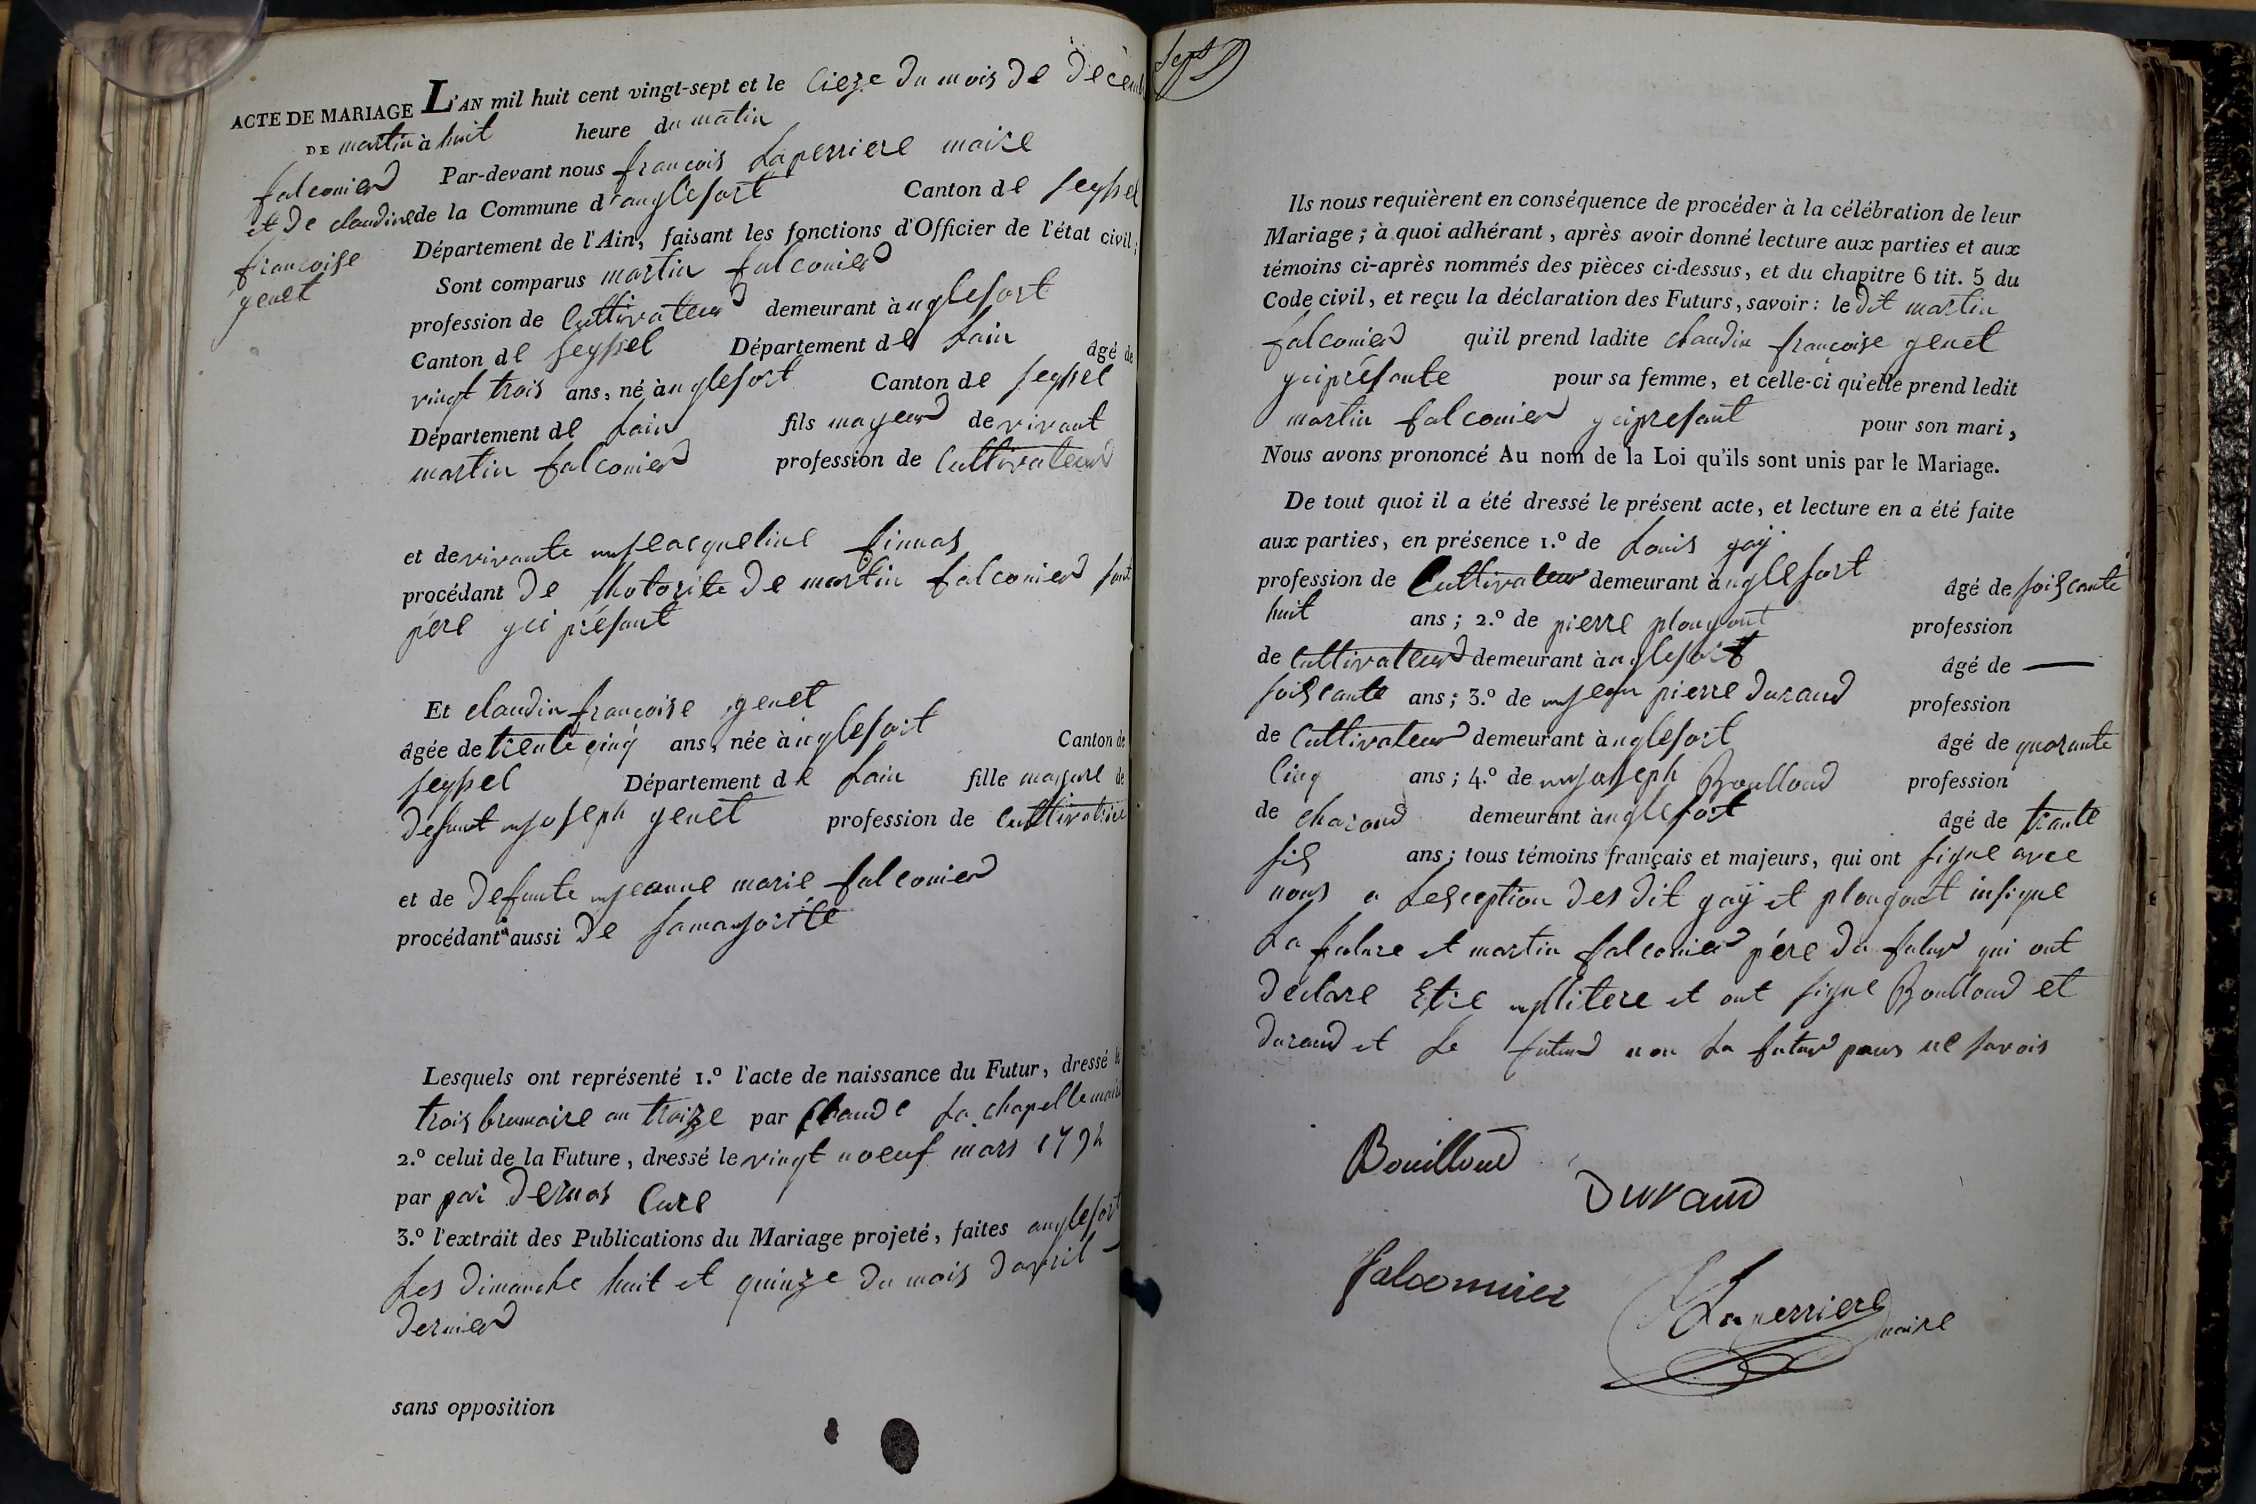 ACTE DE MARIAGE
DE martin
falconier
et de claudine
françoise
genet
L'AN mil huit cent vingt-sept et le sieze du mois de décem
à huit heure du matin
Par-devant nous françois Laperriere maire
de la Commune d'anglefort Canton de seyssel
Département de l'Ain, faisant les fonctions d'Officier de l'état civil;
Sont comparus martin falconier
profession de Cultivateur demeurant à nglefort
Canton de seyssel Département de Lain âgé de
vingt trois ans, né à nglefort Canton de seyssel
Département de Lain fils mageur de vivant
martin falconier profession de Cultivateur
et de vivante Jeacqueline finnas
procédant de Lhotorite de martin falconier sont
père yci présant
Et claudin françoise genet
âgée de trente cinq ans, née à nglefort Canton de
seyssel Département de Lain fille magure de
defunt Joseph genet profession de Cultivatrice
et de defunte Jeanne marie falconier
procédant aussi de samajorite
Lesquels ont représenté 1.º l'acte de naissance du Futur, dressé le
trois brumaire an treize par Claude La chapelle maire
2.º celui de la Future, dressé le vingt noeuf mars 1792
par pai dernas Cure
3.º l'extrait des Publications du Mariage projeté, faites anglefort
Les dimanche huit et quinze du mois davril
dernier
sans opposition
sept
Ils nous requièrent en conséquence de procéder à la célébration de leur
Mariage; à quoi adhérant, après avoir donné lecture aux parties et aux
témoins ci-après nommés des pièces ci-dessus, et du chapitre 6 tit. 5 du
Code civil, et reçu la déclaration des Futurs, savoir: le dit martin
falconier qu'il prend ladite claudin françoise genet
yciprésante pour sa femme, et celle-ci qu'elle prend ledit
martin falconier ycipresant pour son mari,
Nous avons prononcé Au nom de la Loi qu'ils sont unis par le Mariage.
De tout quoi il a été dressé le présent acte, et lecture en a été faite
aux parties, en présence 1.º de Louis gaÿ
profession de Cultivateur demeurant à nglefort âgé de soiscante
huit ans; 2.º de pierre plongont profession
de Cultivateur demeurant à nglefort âgé de —
soiscante ans; 3.º de Jean pierre Durand profession
de Cultivateur demeurant à nglefort âgé de quarante
Cinq ans; 4.º de Joseph Boulloud profession
de charond demeurant à nglefort âgé de trante
sis ans; tous témoins français et majeurs, qui ont signe avec
nous a Lesception des dit gaÿ et plongont insique
La future et martin falconier père du futur qui ont
declare Etre illitere et ont signe Boulloud et
Durand et Le futur non La futur pour ne savois
Bouilloud
Durand
falconnier
Laperriere
maire